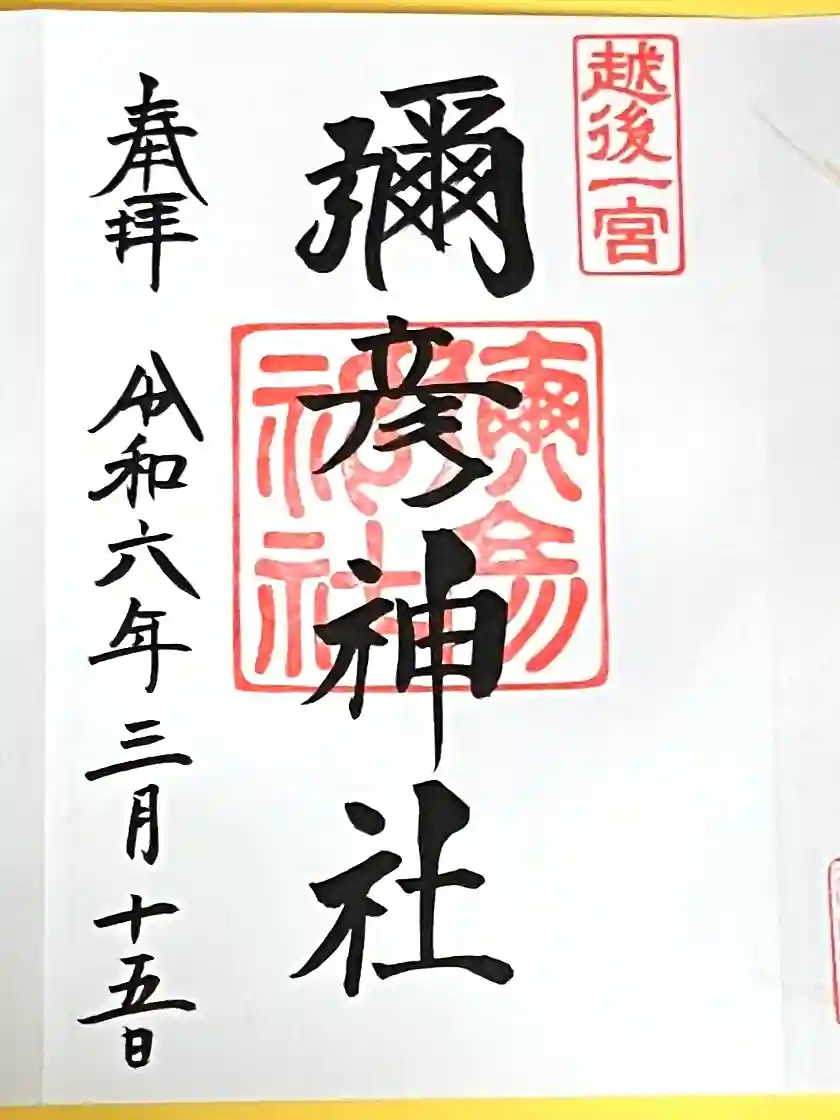 越後一宮
彌彦神社
彌彦神社
奉拜 令和六年三月十五日